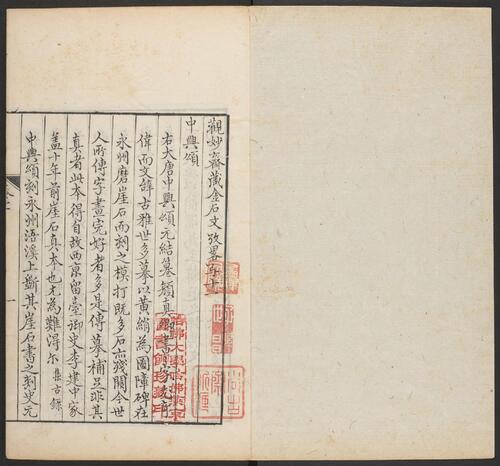 觀妙齋藏金石文攷畧卷十
中興頌
右大唐中興頌元結譔顏真卿書書字尤奇
偉而文辭古雅世多摹以黃絹為圖障碑在
永州磨崖石而刻之模打既多石亦殘闕今世
人所傳字畫完好者多是傳摹補足非其
真者此本得自故西京留臺御史李建中家
葢十年前崖石真本也尤為難得爾 集古錄
中興頌刻永州浯溪上斲其崖石書之刻史元
一
哈佛大學哈佛燕京
圖書館珍藏印